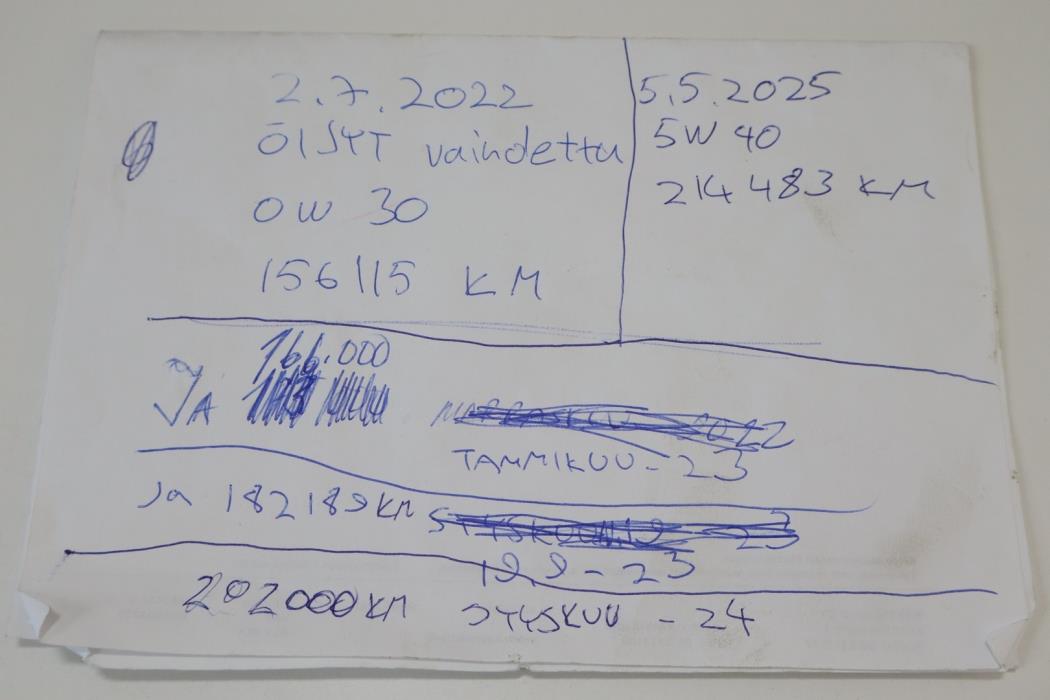 2.7.2022
ÖljyT vaihdettu
0W 30
156115 KM
5.5.2025
5W 40
214 483 KM
166.000
JA
TAMMIKUU - 23
Ja 182189 KM
19.9 - 23
202000 KM SYYSKUU - 24